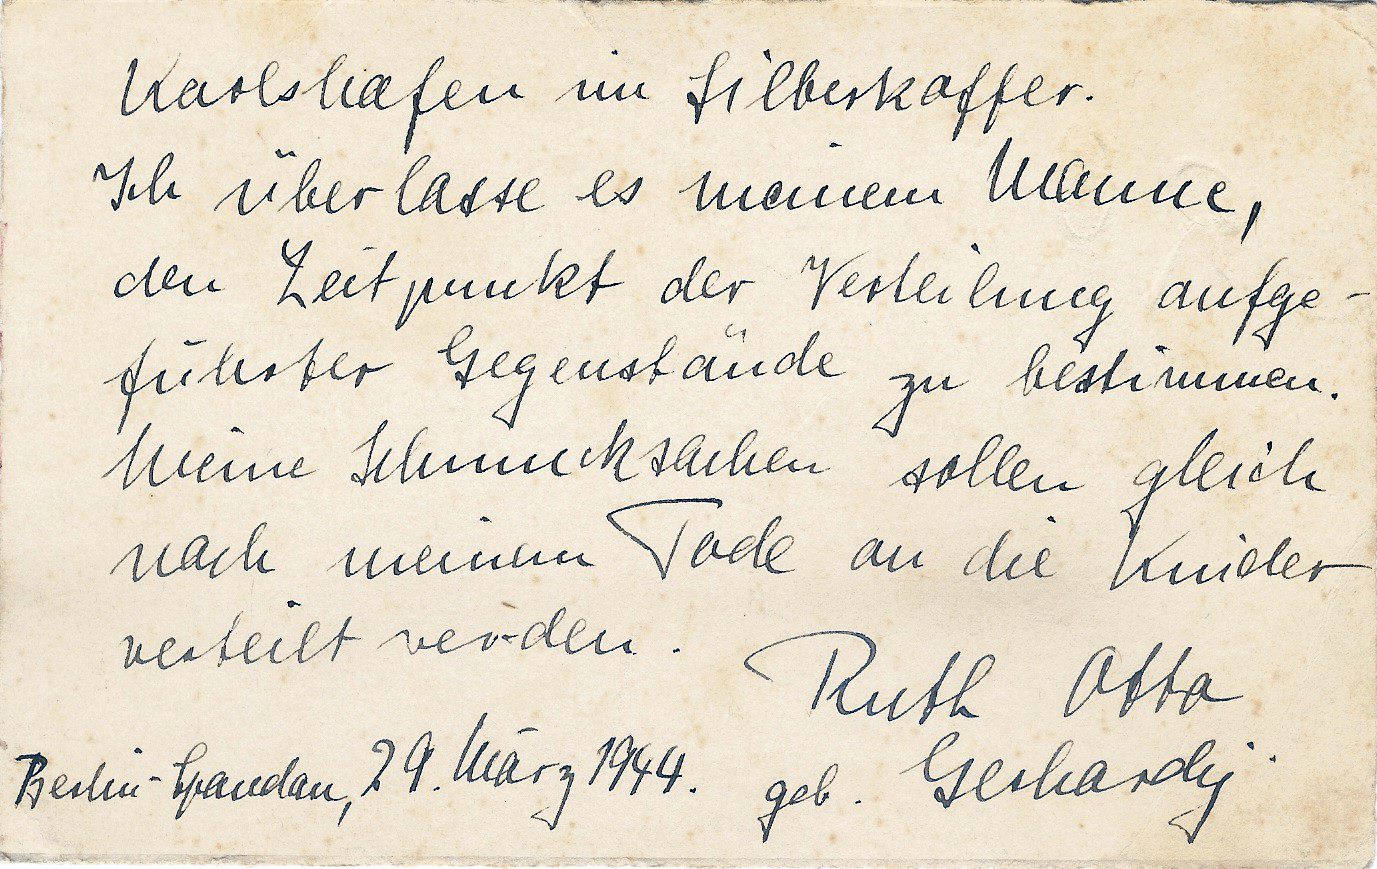 Karlshafen im Silberkoffer.
Ich überlasse es meinem Manne,
den Zeitpunkt der Verteilung aufge-
führter Gegenstände zu bestimmen.
Meine Schmucksachen sollen gleich
nach meinem Tode an die Kinder
verteilt werden.
Ruth Otto
geb. Gerhardy.
Berlin-Spandau, 29. März 1944.